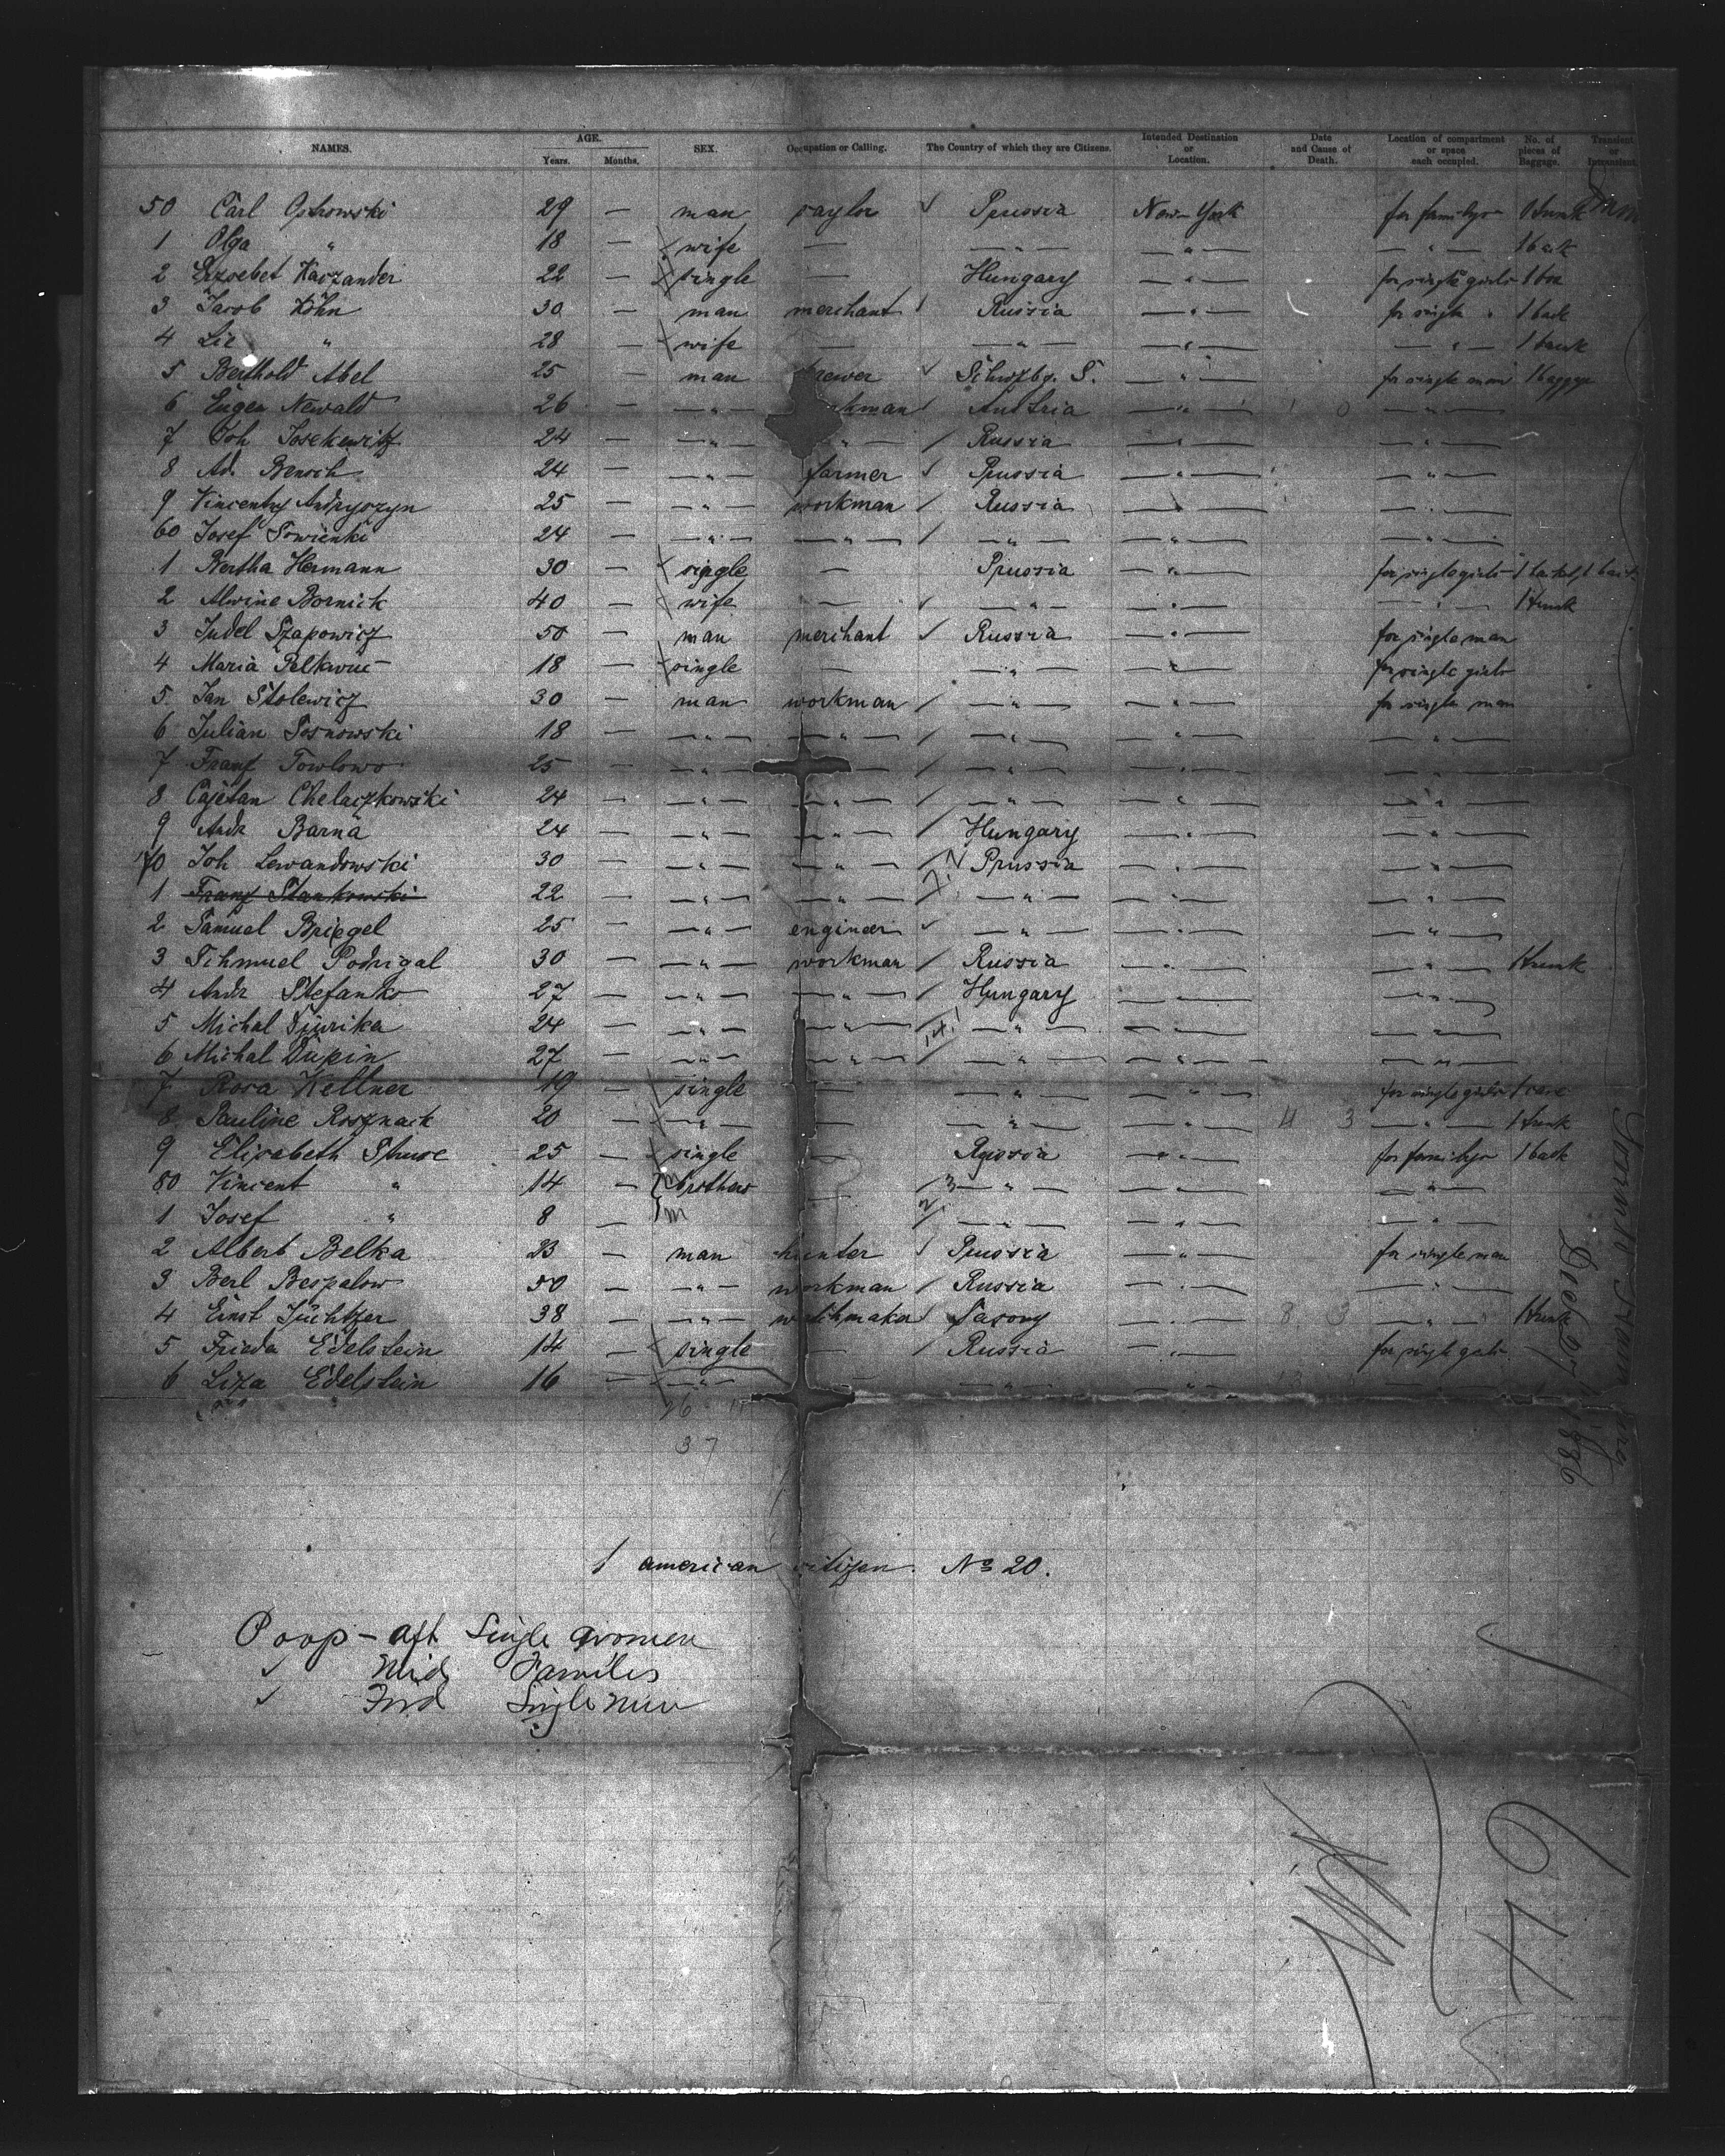 NAMES. AGE. Years. Months. SEX. Occupation or Calling. The Country of which they are Citizens. Intended Destination or Location. Date and Cause of Death. Location of compartment or space each occupied. No. of pieces of Baggage. Transient or
50 Carl Ostrowski 29 — man taylor ✓ Prussia New-York for familys 1 trunk
1 Olga " 18 — wife — — " — — " — — " —
2 Erzsebet Kaszander 22 — single — Hungary — " — for single girls 1 box
3 Jacob Kohn 30 — man merchant Russia — " — for single "
4 " 28 — wife — — " — — " — — " — 1 trunk
5 Berthold Abel 25 — man brewer ✓ Schwzbg. S. — " — for single man
6 Eugen Newald 26 — — " — kman Austria — " — — " —
7 Joh Josekewitz 24 — — " — " — / Russia — " — — " —
8 Ad. Bensch 24 — — " — farmer ✓ Prussia — " — — " —
9 Vincenty Andryszyn 25 — — " — workman / Russia — " — — " —
60 Josef Sowienki 24 — — " — — " — / — " — — " — — " —
1 Bertha Hermann 30 — single — Prussia — " — for single girls
2 Alwine Bornick 40 — wife — — " — — " — — " — 1 trunk
3 Judel Szapowicz 50 — man merchant ✓ Russia — " — for single man
4 Maria 18 — single — — " — — " — for single girls
5 Jan Stolewicz 30 — man workman / — " — — " — for single man
6 Julian Sosnowski 18 — — " — — " — / — " — — " — — " —
7 Franz Towlowo 25 — — " — — " — / — " — — " — — " —
8 Cajetan Chelaczkowski 24 — — " — — " — / — " — — " — — " —
9 Andr Barna 24 — — " — — " — / Hungary — " — — " —
70 Joh Lewandowski 30 — — " — — " — / Prussia — " — — " —
1 Franz Stankowski 22 — — " — — " — — " — — " — — " —
2 Samuel Briegel 25 — — " — engineer ✓ — " — — " — — " —
3 Schmuel Podrigal 30 — — " — workman / Russia — " — — " — 1 trunk
4 Andr Stefanko 27 — — " — — " — / Hungary — " — — " —
5 Michal Djurika 24 — — " — — " — — " — — " — — " —
6 Michal Dupin 27 — — " — — " — / — " — — " — — " —
7 Rosa Kellner 19 — single — — " — — " — for single girls 1 case
8 Pauline Rosznack 20 — — " — — — " — — " — 4 3 — " — 1 trunk
9 Elisabeth 25 — single — Russia — " — for familys
80 Vincent " 14 — brothers — — " — — " — — " —
1 Josef " 8 — m — " — — " — — " —
2 Albert Belka 23 — man hunter Prussia — " — for single man
3 Berl Bespalow 50 — — " — workman / Russia — " — — " —
4 Ernst Jüchtzer 38 — — " — watchmaker Saxony — " — 8 3 — " — 1 trunk
5 Frieda Edelstein 14 — single — / Russia — " — for single girls
6 Liza Edelstein 16 — — " — — " — — " —
37
1 american citizen. No 20.
Poop - aft Single women
✓ Mid Families
✓ Fwd Single men
1886